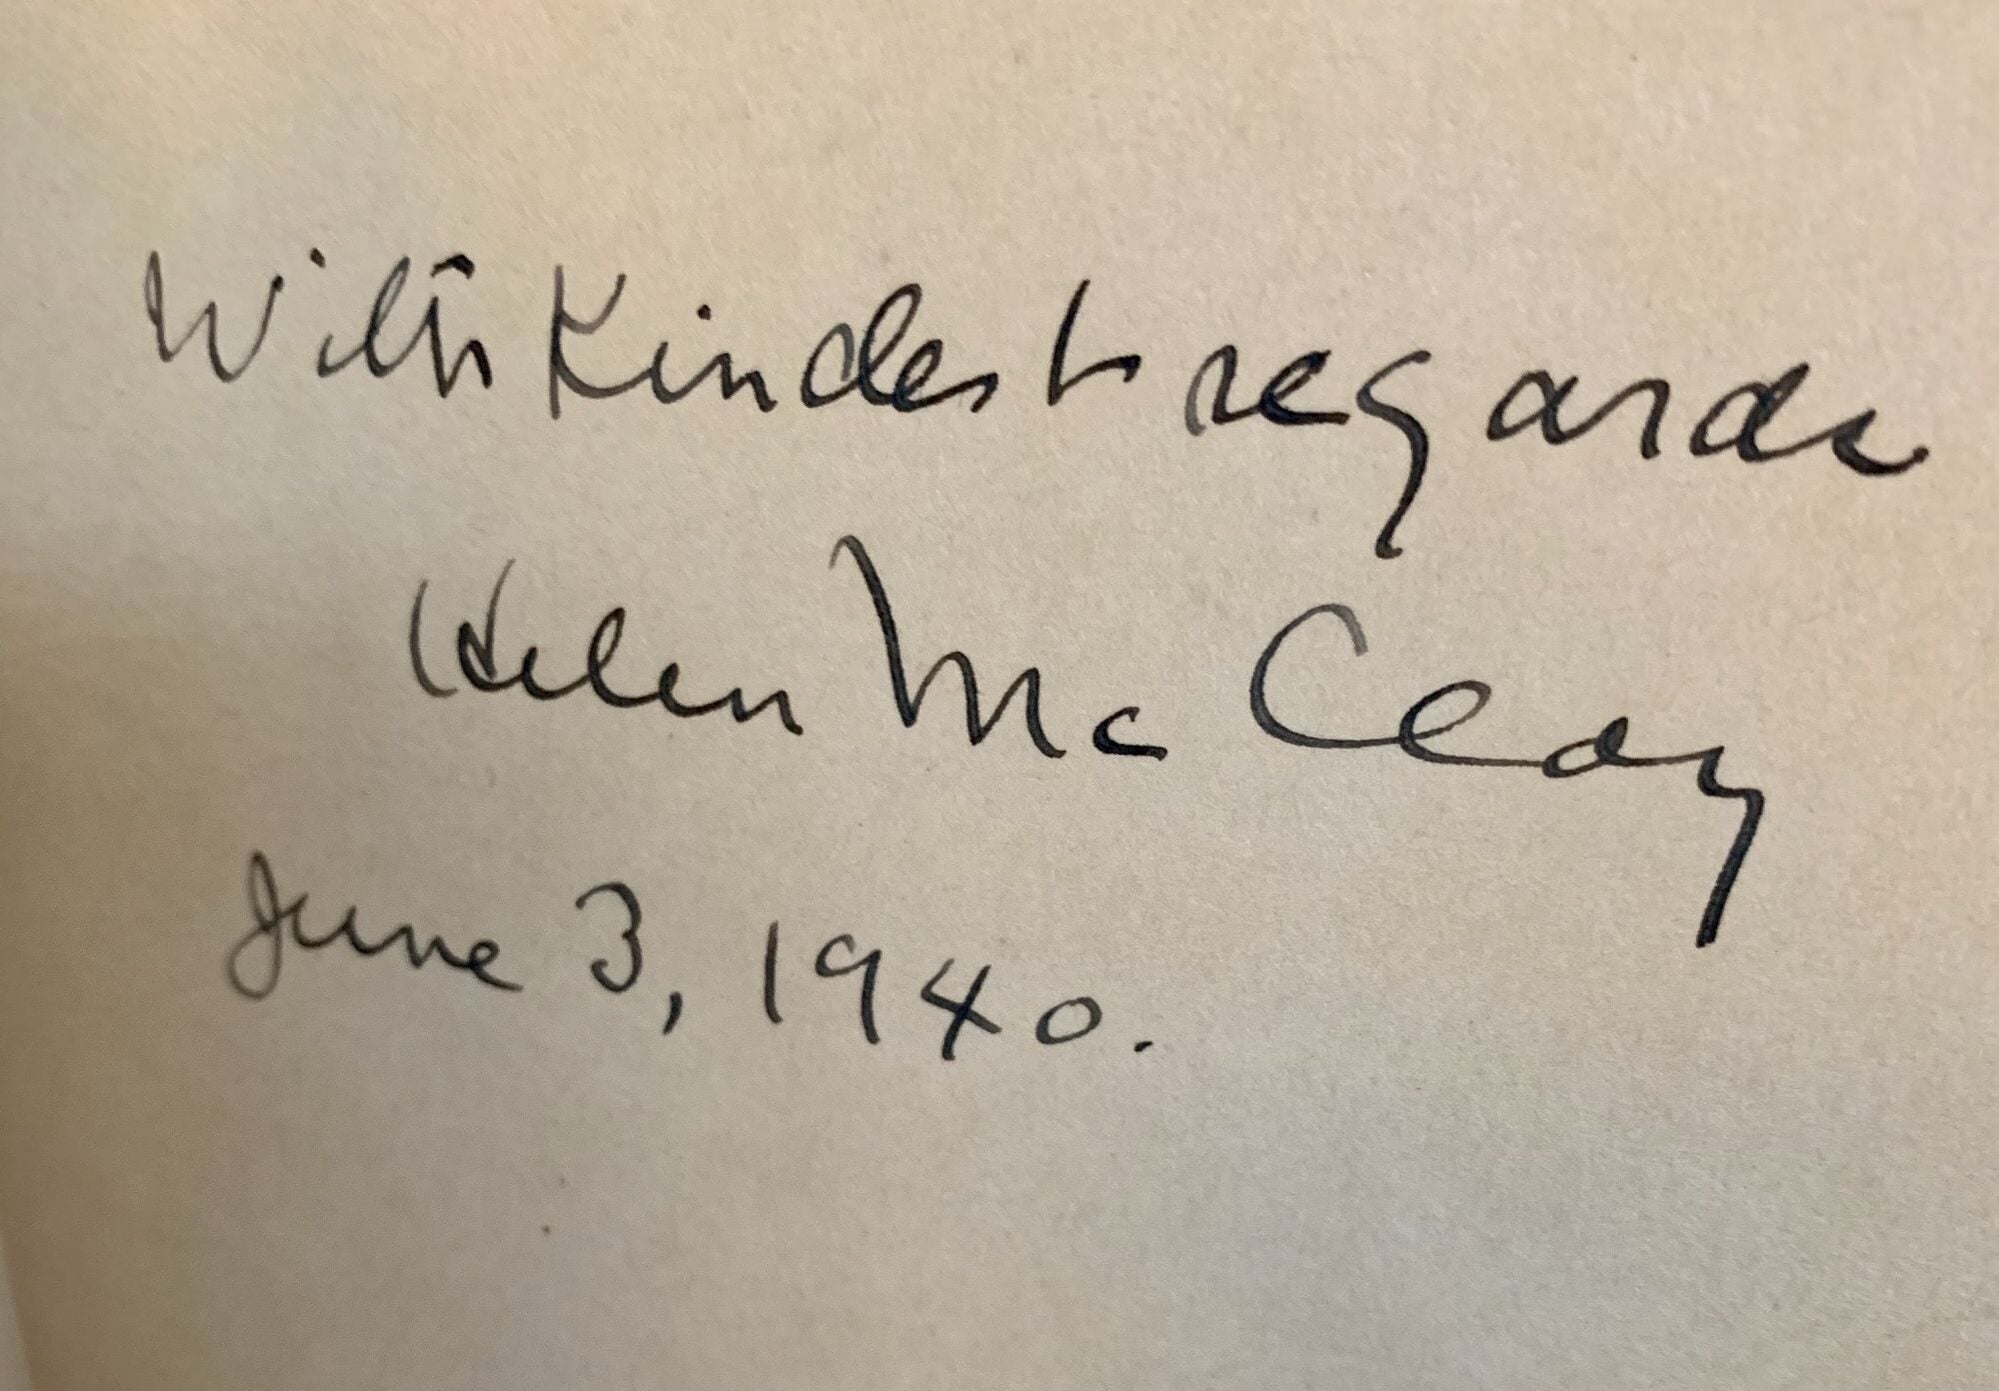 With Kindest regards
Helen McCloy
June 3, 1940.